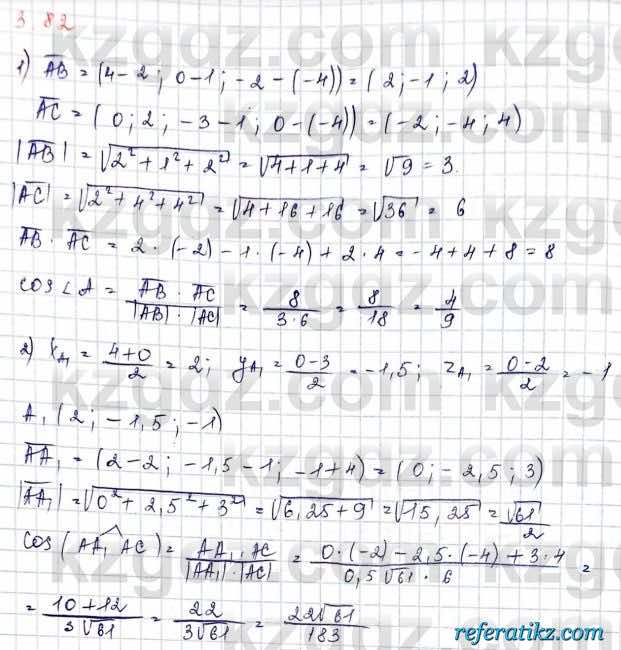 3.82
1) AB = (4-2; 0-1; -2-(-4)) = (2; -1; 2)
AC = (0; 2; -3-1; 0-(-4)) = (-2; -4; 4)
|AB| = √2²+1²+2² = √4+1+4 = √9 = 3.
|AC| = √2²+4²+4² = √4+16+16 = √36 = 6
AB · AC = 2·(-2)-1·(-4)+2·4 = -4+4+8 = 8
cos∠A = AB · AC / |AB| · |AC| = 8 / 3·6 = 8/18 = 4/9
2) x_A₁ = 4+0 / 2 = 2; y_A₁ = 0-3 / 2 = -1,5; z_A₁ = 0-2 / 2 = -1
A₁ (2; -1,5; -1)
AA₁ = (2-2; -1,5-1; -1+4) = (0; -2,5; 3)
|AA₁| = √0²+2,5²+3² = √6,25+9 = √15,25 = √61 / 2
cos(AA₁ AC) = AA₁ · AC / |AA₁| · |AC| = 0·(-2)-2,5·(-4)+3·4 / 0,5√61 · 6 =
= 10+12 / 3√61 = 22 / 3√61 = 22√61 / 183
referatikz.com
kzgdz.com